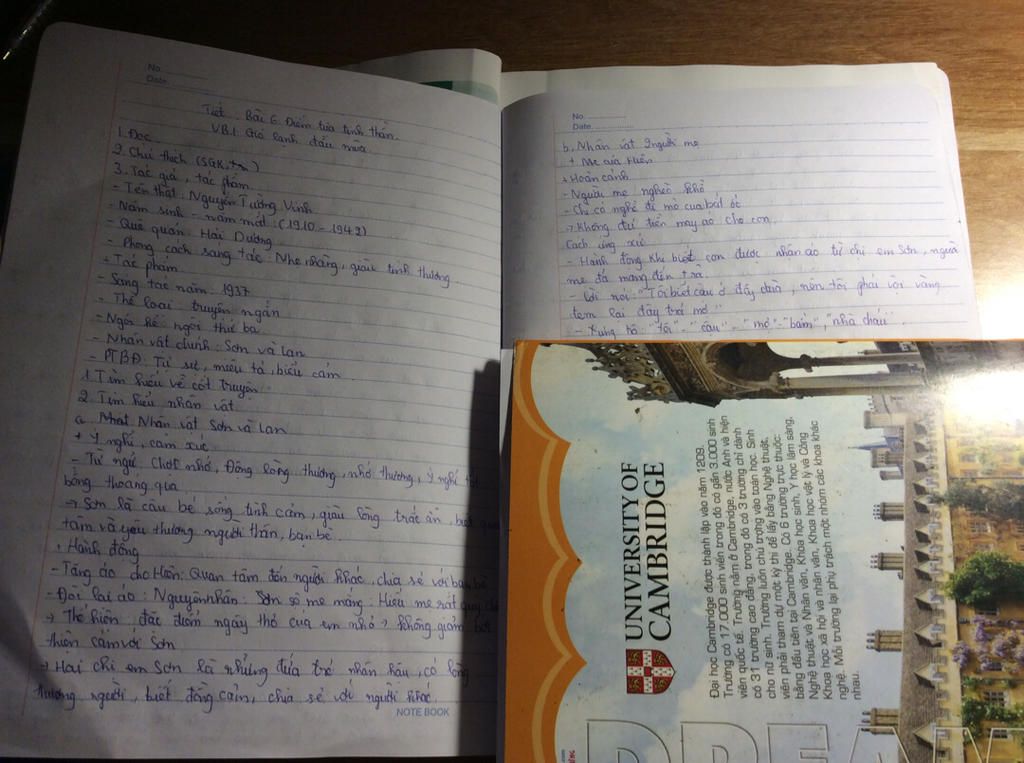 No.
Date
Tiết : Bài 6 Điểm tựa tinh thần.
VB1. Gió lạnh đầu mùa
1. Đọc
2. Chú thích (SGK,)
3. Tác giả, tác phẩm
- Tên thật : Nguyễn Tường Vinh
- Năm sinh - năm mất : (1910 - 1942)
- Quê quán Hải Dương
- Phong cách sáng tác : Nhẹ nhàng, giàu tình thương
+ Tác phẩm
- Sáng tác năm : 1937
- Thể loại : truyện ngắn
- Ngôi kể : ngôi thứ ba
- Nhân vật chính : Sơn và Lan
- PTBĐ : Tự sự, miêu tả, biểu cảm
1. Tìm hiểu về cốt truyện
2. Tìm hiểu nhân vật
a. Nhân vật Sơn và Lan
+ Ý nghĩ, cảm xúc
- Từ ngữ : Chợt nhớ, Động lòng thương, nhớ thương, Ý nghĩ tốt
bỗng thoáng qua
-> Sơn là cậu bé sống tình cảm, giàu lòng trắc ẩn, biết quan
tâm và yêu thương người thân, bạn bè.
+ Hành động
- Tặng áo cho Hiên: Quan tâm đến người khác, chia sẻ với bạn bè
- Đòi lại áo : Nguyên nhân : Sơn sợ mẹ mắng : Hiểu mẹ rất quý
-> Thể hiện : đặc điểm ngây thơ của em nhỏ -> không giảm bớt
thiện cảm với Sơn
-> Hai chị em Sơn là những đứa trẻ nhân hậu, có lòng
thương người, biết đồng cảm, chia sẻ với người khác.
NOTE BOOK
No.
Date
b, Nhân vật người mẹ
+ Mẹ của Hiên
+ Hoàn cảnh
- Người mẹ nghèo khổ
- Chỉ có nghề đi mò cua bắt ốc
-> Không đủ tiền may áo cho con.
Cách ứng xử
- Hành động khi biết con được nhận áo từ chị em Sơn, người
mẹ đã mang đến trả.
- Lời nói : "Tôi biết cậu ở đây đùa, nên tôi phải vội vàng
đem lại đây trả mợ"
- Xưng hô : "tôi" - "cậu" - "mợ" - "bẩm", "nhà cháu".
UNIVERSITY OF
CAMBRIDGE
Đại học Cambridge được thành lập vào năm 1209.
Trường có 17.000 sinh viên trong đó có gần 3.000 sinh
viên quốc tế. Trường nằm ở Cambridge, nước Anh và hiện
có 31 trường cao đẳng, trong đó có 3 trường chỉ dành
cho nữ sinh. Trường luôn chú trọng vào toán học. Sinh
viên phải tham dự một kỳ thi để lấy bằng Nghệ thuật,
bằng đầu tiên tại Cambridge. Có 6 trường trực thuộc:
Nghệ thuật và Nhân văn, Khoa học sinh, Y học lâm sàng,
Khoa học xã hội và nhân văn, Khoa học vật lý và Công
nghệ. Mỗi trường lại phụ trách một nhóm các khoa khác
nhau.